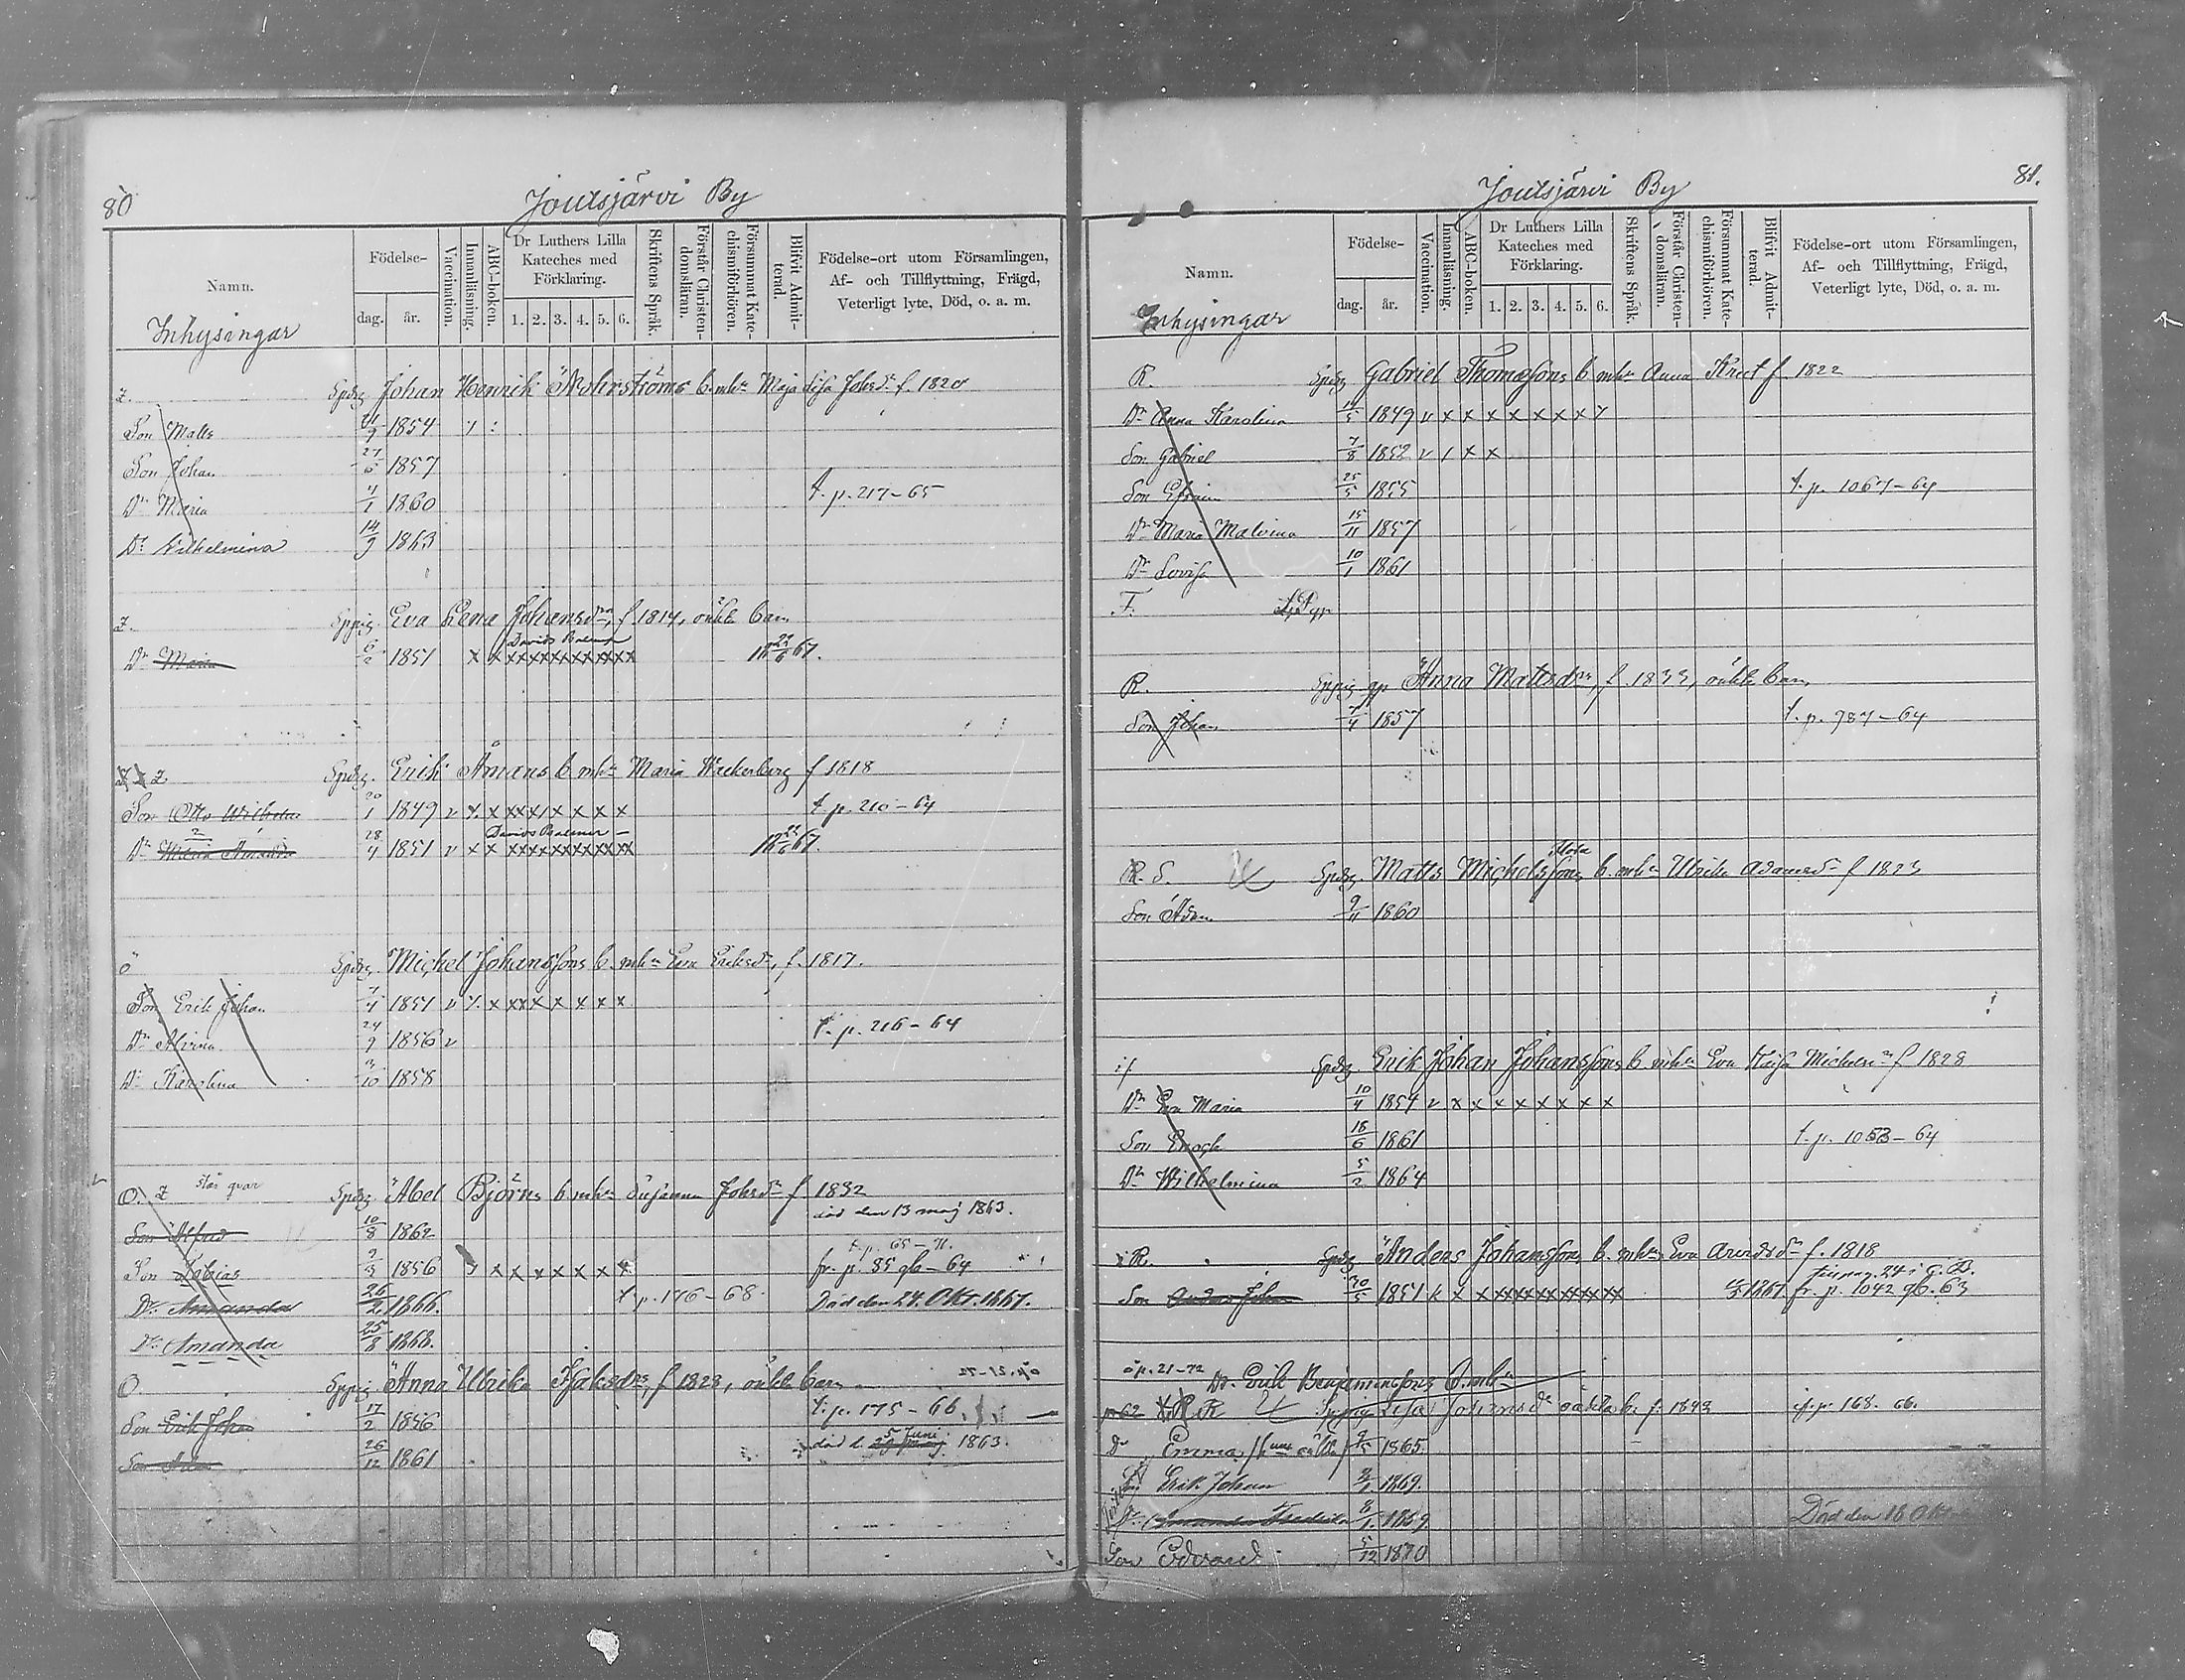 80
Joutsjärvi By
Namn.
Födelse-
dag.
år.
Vaccination.
Innanläsning.
ABC-boken.
Dr Luthers Lilla Kateches med Förklaring.
1. 2. 3. 4. 5. 6.
Skriftens Språk.
Förstår Christendomsläran.
Försummat Katechismiförhören.
Blifvit Admitterad.
Födelse-ort utom Församlingen,
Af- och Tillflyttning, Frägd,
Veterligt lyte, Död, o. a. m.
Inhysingar
Z. Spdrg Johan Henrik b. mhn Maja Lisa Johsdr f. 1820
Son Matts 9 1854
Son Johan 27 1857
Dr Maria 4/1 1860 t. p. 217-65
Dr Wilhelmina 14/9 1863
Z. Eva Lena Johansdrs, f. 1814, oäkta barn
Davids Psalmer
Dr Maria 6/2 1851 x x xxxxxxxxxxxx 22/6 67.
Z Spdrg. Erik Åmans b mhn Maria Wackerberg f 1818
Son Otto Wilhelm 20/1 1849 v t. p. 210-64
Davids Psalmer
Dr Maria Amanda 28/4 1851 v x x 22/6 67.
Ö Spdrg. Michel Johanssons b. mhn Eva Eriksdr, f. 1817.
Son Erik Johan 1851 v
Dr Alvina 24/9 1856 v t. p. 216-64
Dr Karolina 10 1858
O. Z står qvar Spdrg Abel Björns b mhn Susanna Johsdr f 1832
död den 13 maj 1863.
Son Alfred 10/8 1862
t. p. 65-71.
Son Tobias 1856 x x x x x x fr. p. 85 gb-64
Dr Amanda 26/2 1866. t p. 176-68. Död den 24. Okt. 1867.
Dr Amanda 25/8 1868.
O. Anna Ulrika Isaksdrs, f 1828, oäkta barn
Son Erik Johan 17/2 1856 t. p. 175-66.
5 Juni
Son 26/12 1861 död d. 1863.
81.
Joutsjärvi By
Namn.
Födelse-
dag.
år.
Vaccination.
Innanläsning.
ABC-boken.
Dr Luthers Lilla Kateches med Förklaring.
1. 2. 3. 4. 5. 6.
Skriftens Språk.
Förstår Christendomsläran.
Försummat Katechismiförhören.
Blifvit Admitterad.
Födelse-ort utom Församlingen,
Af- och Tillflyttning, Frägd,
Veterligt lyte, Död, o. a. m.
Inhysingar
R. Spdrg Gabriel Thomassons b mhn Anna f. 1822
Dr Anna Karolina 14/5 1849 v x x x x x x x
Son Gabriel 7/8 1852 v x x
Son Efraim 25/5 1855 t. p. 1067-64
Dr Maria Malvina 15/11 1857
Dr Lovisa 10/1 1861
F.
R. Anna Mattsdrs, f. 1833, oäkta barn
Son Johan 7/4 1857 t. p. 987-64
R. S. Spdrg. Matts Michelssons b. mhn Ulrika Adamsdr f 1823
Son Adam 9/11 1860
Spdrg. Erik Johan Johanssons b. mhn Eva Michelsdr f 1828
Dr Eva Maria 10/4 1854 v x x x x x x x x
Son Enoch 18/6 1861 t. p. 1053-64
Dr Wilhelmina 5/2 1864
R. Spdrg Anders Johanssons b. mhn Eva Arvidsdr f. 1818
Son Anders Johan 30/5 1851 1867 fr. p. 1042 gb. 63
ö p. 21-72
Dr. Erik Benjaminssons b. mhn
R Lisa Johansdr oäkta b. f. 1843 if. p. 168. 66.
Dr Emma 1865.
Erik Johan 1869.
Dr Amanda Fredrika 8/1 1869 Död den 18 Okt
Son Edvard 5/12 1870